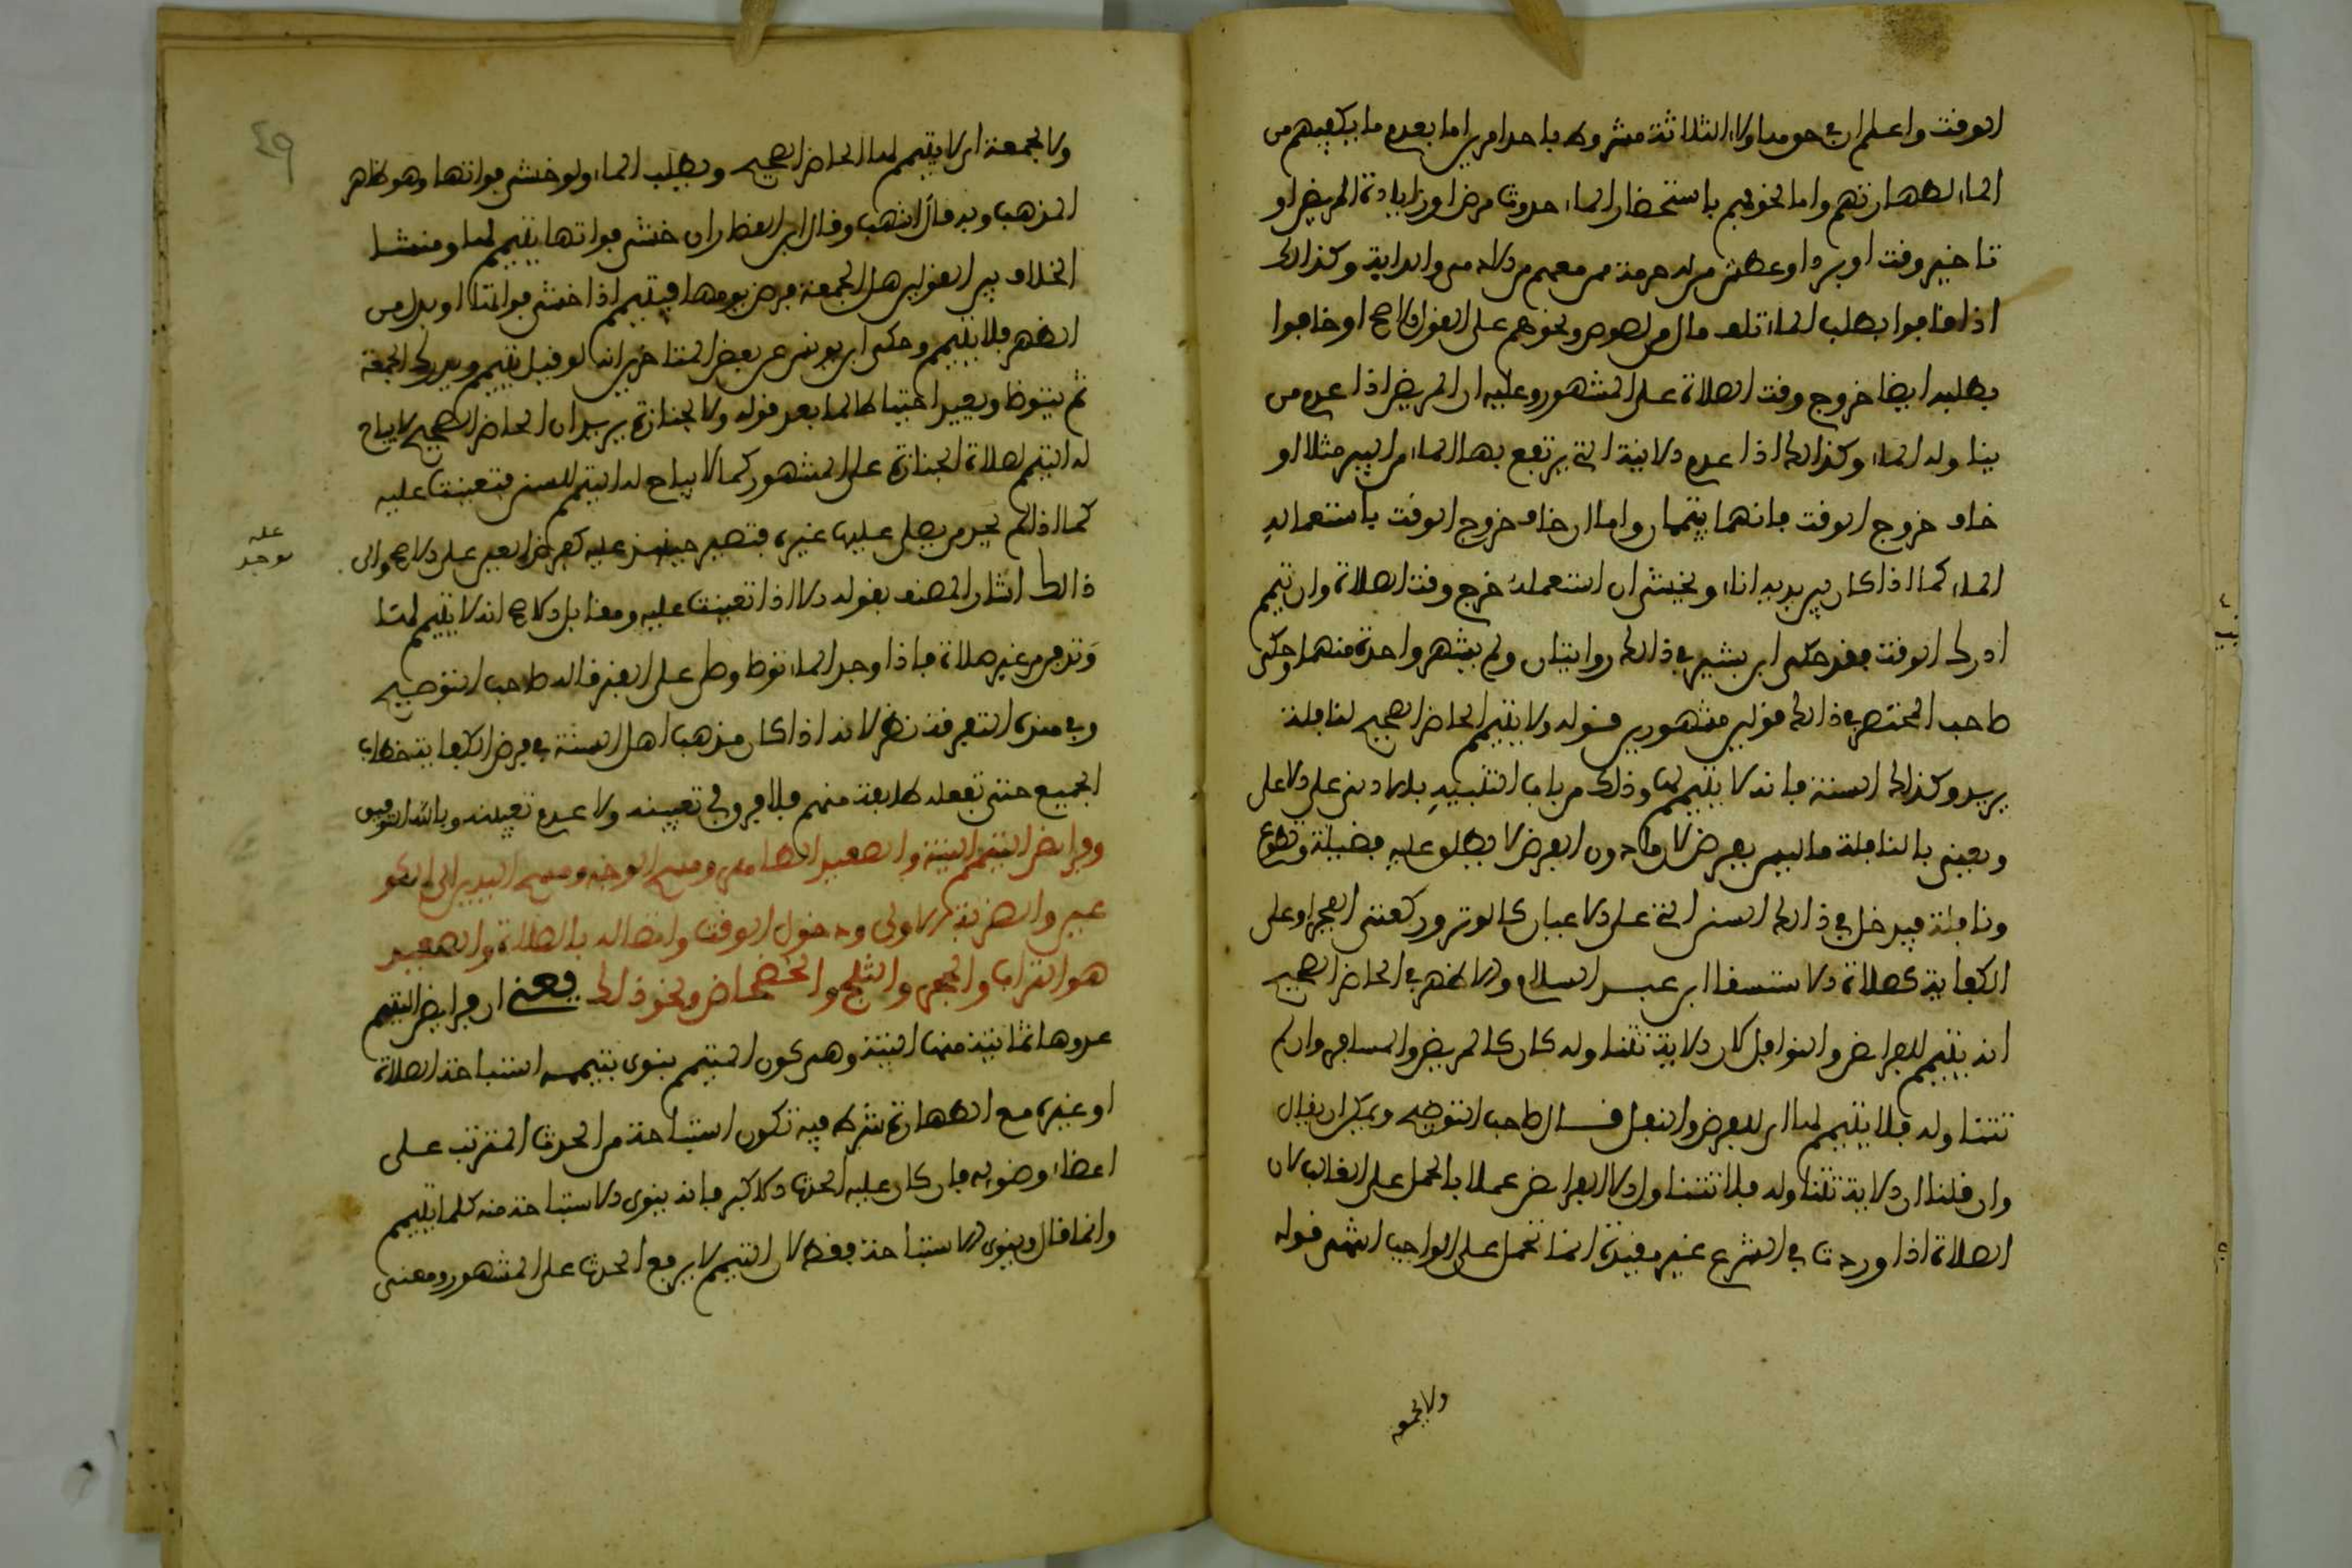 الوقت واعلم ان في حق هاولاء الثلاثة مشروط باحد امرين اما بعدم ما يكفيهم من
الماء لطهارتهم واما لخوفهم باستحضار الماء حدوث مرض او زيادة المرض او
تاخير وقت او برء او عطش من له حرمة ممن معهم من الادمي والدابة وكذالك
اذا خافوا بطلب الماء تلف مال من لصوص ونحوهم على القول الاصح او خافوا
بطلبه ايضا خروج وقت الصلاة على المشهور وعليه ان المريض اذا عدم من
يناوله الماء وكذالك اذا عدم الانية التي يرتفع بها الماء من البير مثلا او
خاف خروج الوقت فانهما يتيممان واما ان خاف خروج الوقت باستعماله
الماء كما اذا كان بين يديه اناء ويخشى ان استعمله خرج وقت الصلاة وان تيمم
ادرك الوقت فقد حكى ابن بشير في ذالك روايتان ولم يشهر واحدة منهما وحكى
صاحب المختصر في ذالك قولين مشهورين قوله ولا يتيمم الحاضر الصحيح لنافلة
يريد وكذالك السنة فانه لا يتيمم لها وذلك من باب التنبيه بالادنى على الاعلى
ويعني بالنافلة ما ليس بفرض لان ما دون الفرض لا يطلق عليه فضيلة وتطوع
ونافلة فيدخل في ذالك السنن التي على الاعيان كالوتر وركعتي الفجر او على
الكفاية كصلاة الاستسقاء ابن عبد السلام والاظهر في الحاضر الصحيح
انه يتيمم للفرائض والنوافل لان الاية تتناوله كان كالمريض والمسافر وان لم
تتناوله فلا يتيمم لها اي للفرض والنفل قال صاحب التوضيح ويمكن ان يقال
وان قلنا ان الاية تتناوله فلا تتناول الا الفرائض عملا بالحمل على الغالب لان
الصلاة اذا وردت في الشرع غير مقيدة انما تحمل على الواجب انتهى قوله
ولا لجمعة
٤٩
ولا لجمعة اي لا يتيمم لها الحاضر الصحيح ويطلب الماء ولو خشي فواتها وهو ظاهر
المذهب وبه قال اشهب وقال ابن القصار ان خشي فواتها يتيمم لها ومنشا
الخلاف بين القولين هل الجمعة فرض يومها فيتيمم اذا خشي فواتها او بدل من
الظهر فلا يتيمم وحكى ابن يونس عن بعض المتاخرين انه لو قيل يتيمم ويدرك الجمعة
ثم يتوضا ويعيد احتياطا لما بعد قوله ولا لجنازة يريد ان الحاضر الصحيح لا يباح
له التيمم لصلاة الجنازة على المشهور كما لا يباح له التيمم للسنن فتعينت عليه
كما اذا لم يجد من يصلي عليها غيره فتصير حينئذ عليه كفرض العين على الاصح والى
ذالك اشار المصنف بقوله الا اذا تعينت عليه ومقابل الاصح انه لا يتيمم لها
وتدفن من غير صلاة فاذا وجد الماء توضا وصلى على القبر قاله صاحب التوضيح
وفي هذه التفرقة نظر لانه اذا كان مذهب اهل السنة في فرض الكفاية خطاب
الجميع حتى تفعله طايفة منهم فلا فرق في تعيينه ولا عدم تعيينه وبالله التوفيق
وفرائض التيمم النية والصعيد الطاهر ومسح الوجه ومسح اليدين الى الكو
عين والضربة الاولى ودخول الوقت واتصاله بالصلاة والصعيد
هو التراب والحجر والثلج والخضخاض ونحو ذالك يعني ان فرائض التيمم
عدوها ثمانية منها النية وهو كون المتيمم ينوي بتيممه استباحة الصلاة
او غيره مع الطهارة شرط فيه تكون استباحة من الحدث المترتب على
اعضاء وضوئه فان كان عليه الحدث الاكبر فانه ينوي الاستباحة منه كلما يتيمم
وانما قال وينوي الاستباحة فقط لان التيمم لا يرفع الحدث على المشهور ومعنى